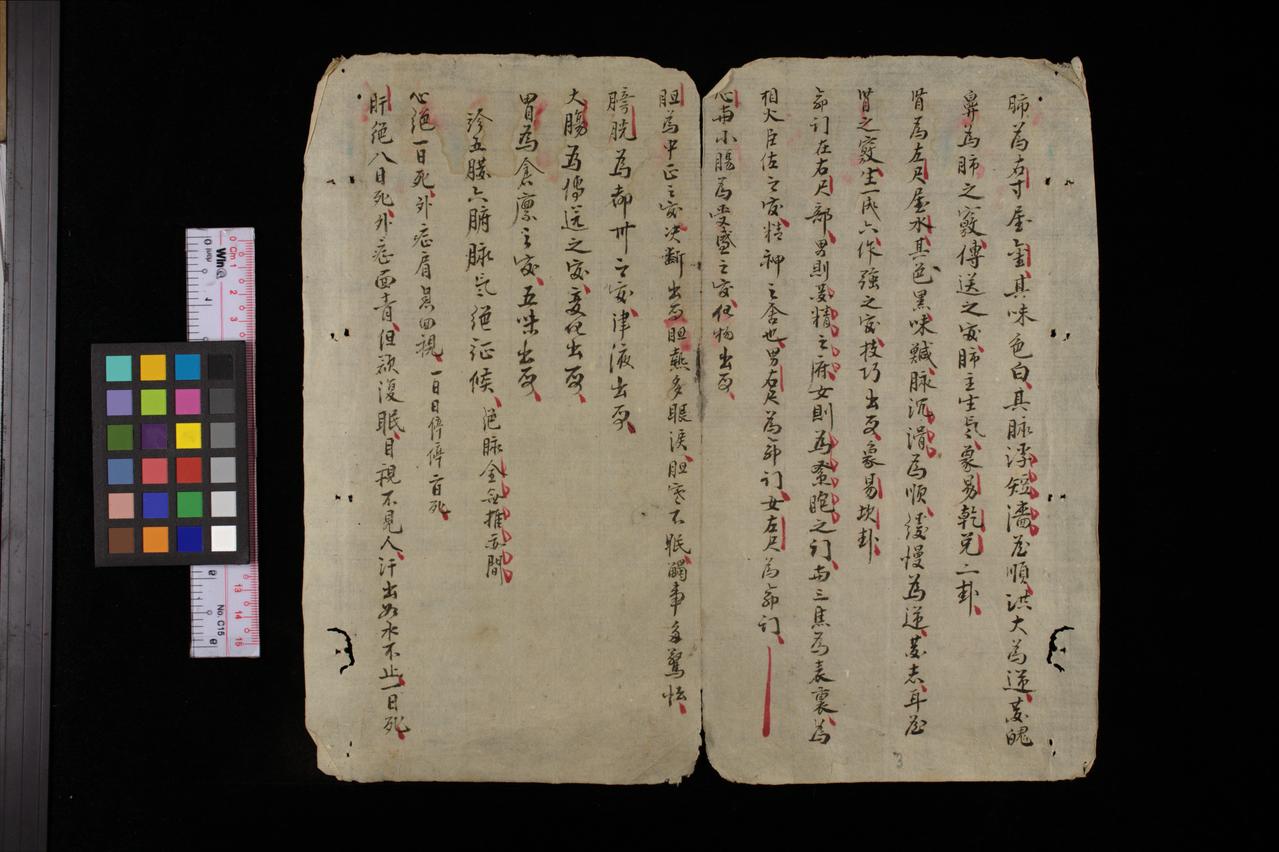 肺為右寸屬金其味色白其脉浮短濇為順洪大為逆藏魄
鼻為肺之竅傳送之官肺主生氣象易乾兌二卦
腎為左尺屬水其色黑味鹹脉沉滑為順緩慢為逆藏志耳為
腎之竅生一成六作強之官技巧出焉象易坎卦
命门在右尺部男則藏精之府女則為系胞之门與三焦為表裏為
相火臣佐之官精神之舍也男右尺為命门女左尺為命门
心與小腸為受盛之官化物出焉
胆為中正之官决断出焉胆熱多眼淚胆寒不眠觸事多驚怯
膀胱為都州之官津液出焉
大腸為傳送之官变化出焉
胃為倉廩之官五味出焉
診五臓六腑脉氣絕征候絕脉全無推
心絕一日死外症肩息回視一日
肝絕八日死外症面青但欲復眠目視不見人汗出如水不止一日死
3
Win
Cm 1 2 3 13 14 15
No. C15